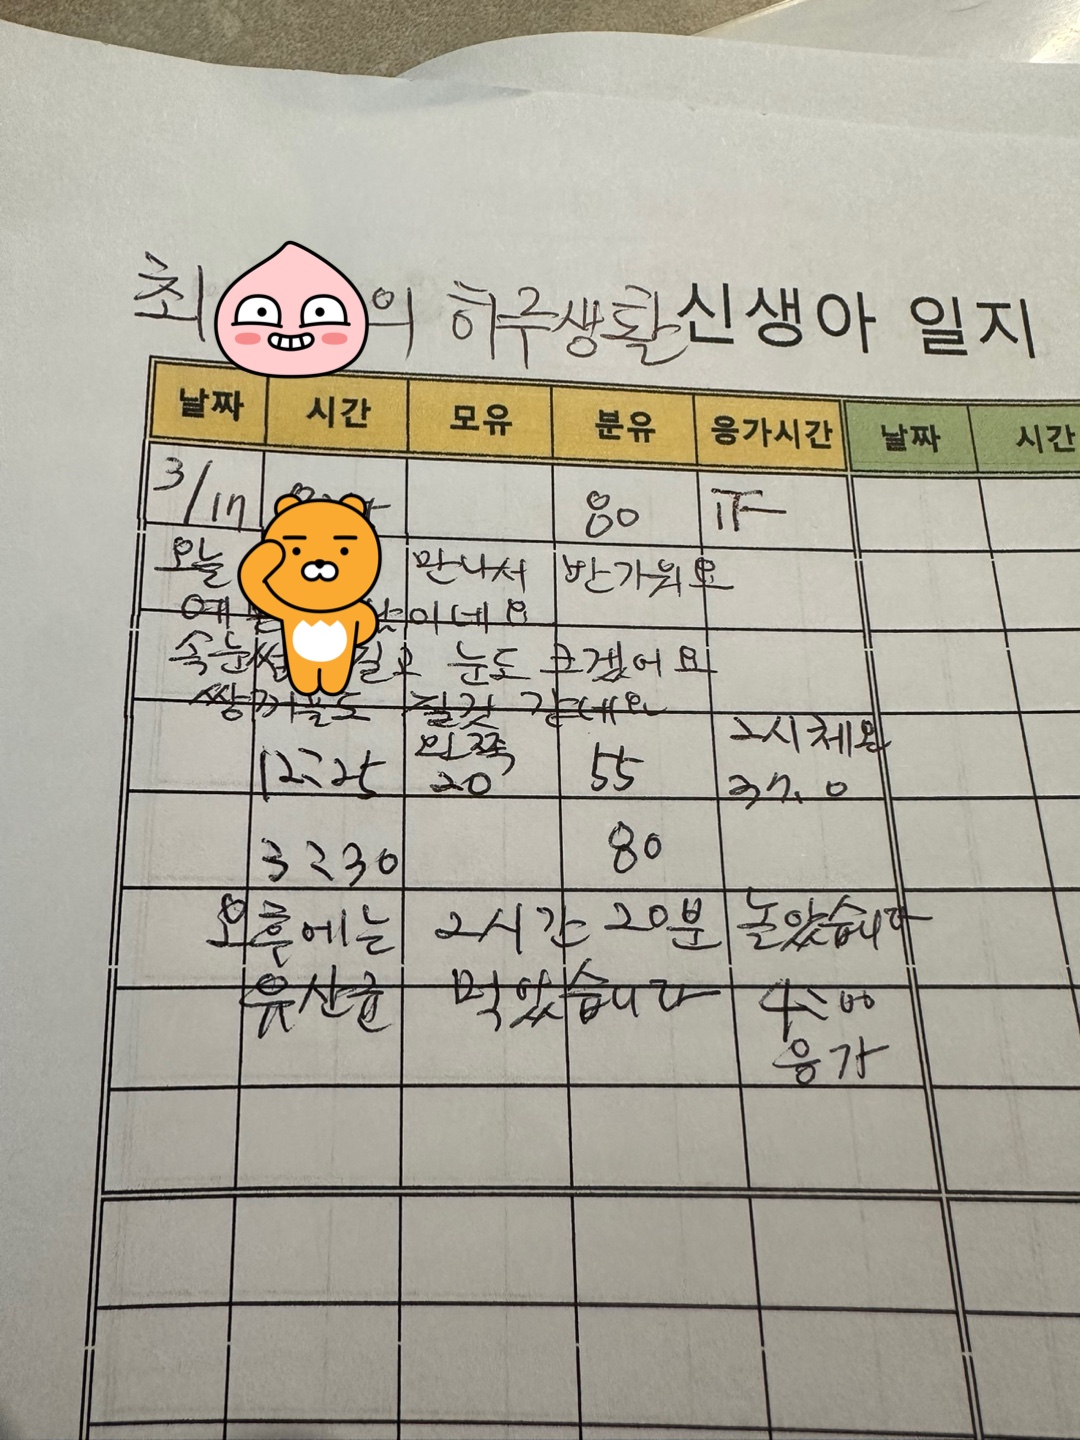 최 의 하루생활 신생아 일지
날짜 시간 모유 분유 응가시간 날짜 시간
3/17 80 TT
오늘 만나서 반가워요
예 이네요
속눈썹 길고 눈도 크겠어요
쌍꺼플도 질것 같네요
12:25 왼쪽 20 55 2시 체온 37.0
3:30 80
오후에는 2시간 20분 놀았습니다
유산균 먹었습니다 4:00 응가